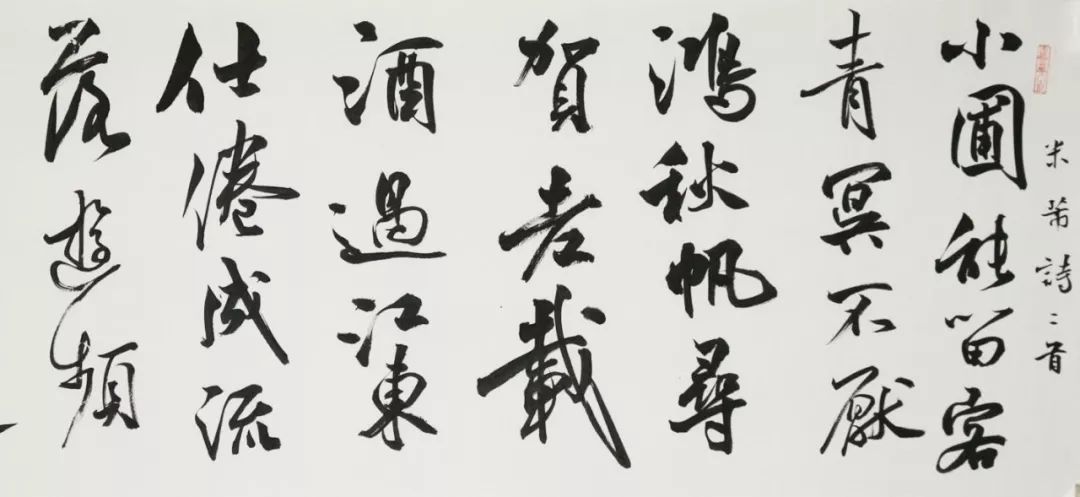 米芾詩二首
小圃能留客
青冥不厭
鴻秋帆尋
賀老載
酒過江東
仕倦成流
落遊頻